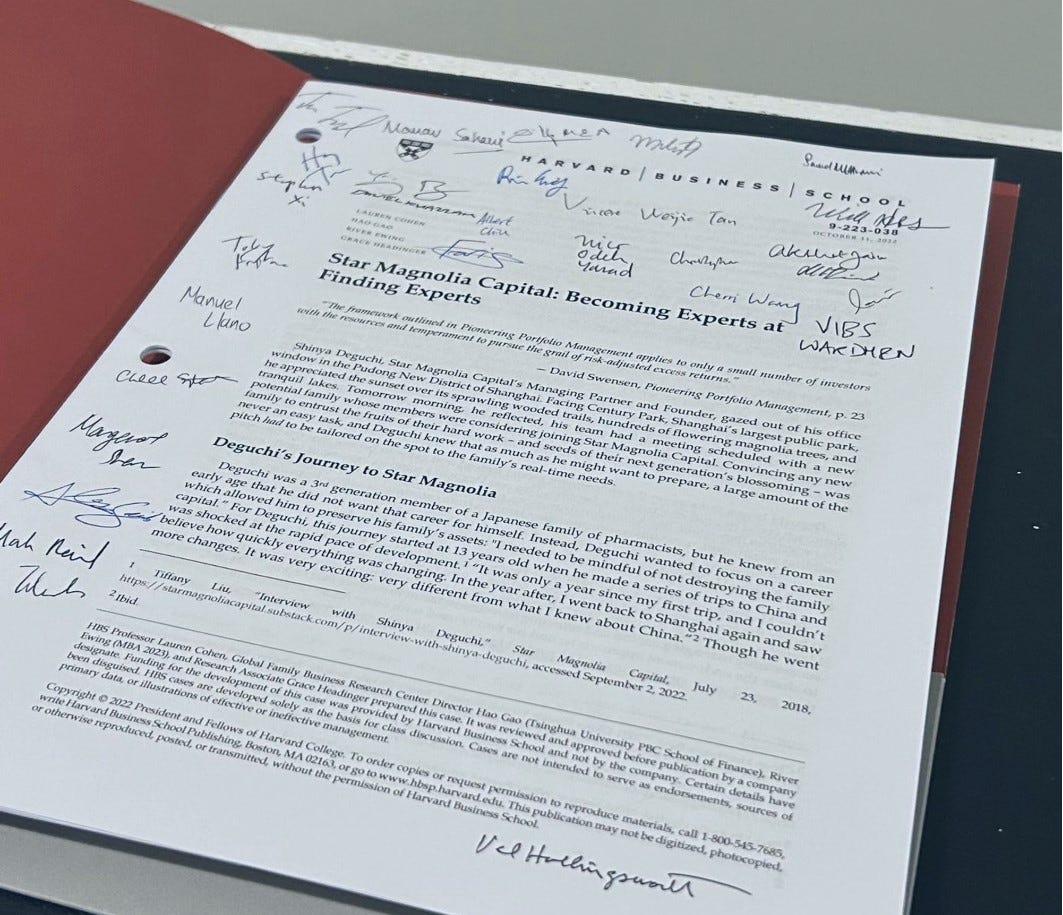 Manav Sahani
HARVARD | BUSINESS | SCHOOL
Stephen
Xi
Vincent Weijie Tan
9-223-038
OCTOBER 11, 2022
LAUREN COHEN
HAO GAO
RIVER EWING
GRACE HEADINGER
Albert
Nick
Odeh
Christopher
Cherri Wang
Manuel
Llano
VIBS
WARDHEN
Star Magnolia Capital: Becoming Experts at
Finding Experts
"The framework outlined in Pioneering Portfolio Management applies to only a small number of investors
with the resources and temperament to pursue the grail of risk-adjusted excess returns."
– David Swensen, Pioneering Portfolio Management, p. 23
Shinya Deguchi, Star Magnolia Capital's Managing Partner and Founder, gazed out of his office
window in the Pudong New District of Shanghai. Facing Century Park, Shanghai's largest public park,
he appreciated the sunset over its sprawling wooded trails, hundreds of flowering magnolia trees, and
tranquil lakes. Tomorrow morning, he reflected, his team had a meeting scheduled with a new
potential family whose members were considering joining Star Magnolia Capital. Convincing any new
family to entrust the fruits of their hard work – and seeds of their next generation's blossoming – was
never an easy task, and Deguchi knew that as much as he might want to prepare, a large amount of the
pitch had to be tailored on the spot to the family's real-time needs.
Deguchi's Journey to Star Magnolia
Deguchi was a 3rd generation member of a Japanese family of pharmacists, but he knew from an
early age that he did not want that career for himself. Instead, Deguchi wanted to focus on a career
which allowed him to preserve his family's assets: "I needed to be mindful of not destroying the family
capital." For Deguchi, this journey started at 13 years old when he made a series of trips to China and
was shocked at the rapid pace of development.1 "It was only a year since my first trip, and I couldn't
believe how quickly everything was changing. In the year after, I went back to Shanghai again and saw
more changes. It was very exciting: very different from what I knew about China."2 Though he went
1 Tiffany Liu, "Interview with Shinya Deguchi," Star Magnolia Capital, July 23, 2018,
https://starmagnoliacapital.substack.com/p/interview-with-shinya-deguchi, accessed September 2, 2022.
2 Ibid.
HBS Professor Lauren Cohen, Global Family Business Research Center Director Hao Gao (Tsinghua University PBC School of Finance), River
Ewing (MBA 2023), and Research Associate Grace Headinger prepared this case. It was reviewed and approved before publication by a company
designate. Funding for the development of this case was provided by Harvard Business School and not by the company. Certain details have
been disguised. HBS cases are developed solely as the basis for class discussion. Cases are not intended to serve as endorsements, sources of
primary data, or illustrations of effective or ineffective management.
Copyright © 2022 President and Fellows of Harvard College. To order copies or request permission to reproduce materials, call 1-800-545-7685,
write Harvard Business School Publishing, Boston, MA 02163, or go to www.hbsp.harvard.edu. This publication may not be digitized, photocopied,
or otherwise reproduced, posted, or transmitted, without the permission of Harvard Business School.
Val Hollingsworth